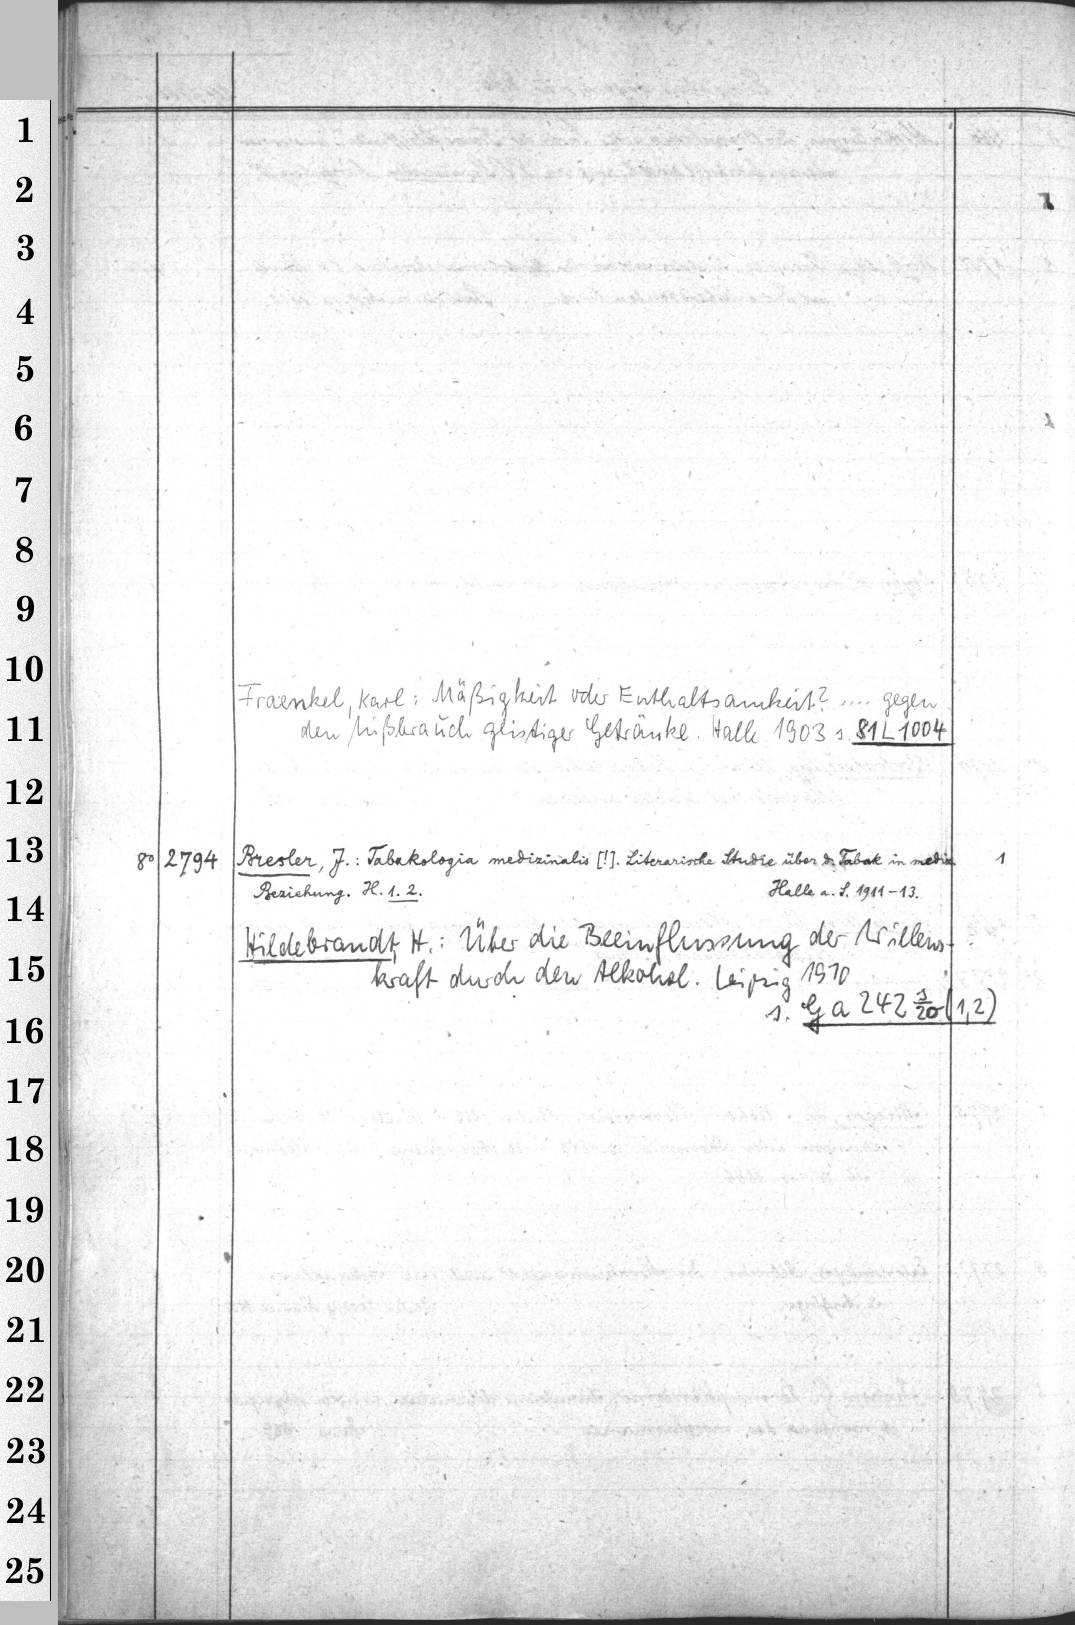 1
2
3
4
5
6
7
8
9
10
Fraenkel, Karl: Mäßigkeit oder Enthaltsamkeit? .... gegen
11
den Mißbrauch geistiger Getränke. Halle 1903 s. 81 L 1004
12
13
8° 2794 Bresler, J.: Tabakologia medizinalis [!]. Literarische Studie über d. Tabak in mediz. 1
Beziehung. H. 1. 2. Halle a. S. 1911-13.
14
Hildebrandt, H.: Über die Beeinflussung der Willens-
15
kraft durch den Alkohol. Leipzig 1910
s. Ga 242 s/20 (1,2)
16
17
18
19
20
21
22
23
24
25